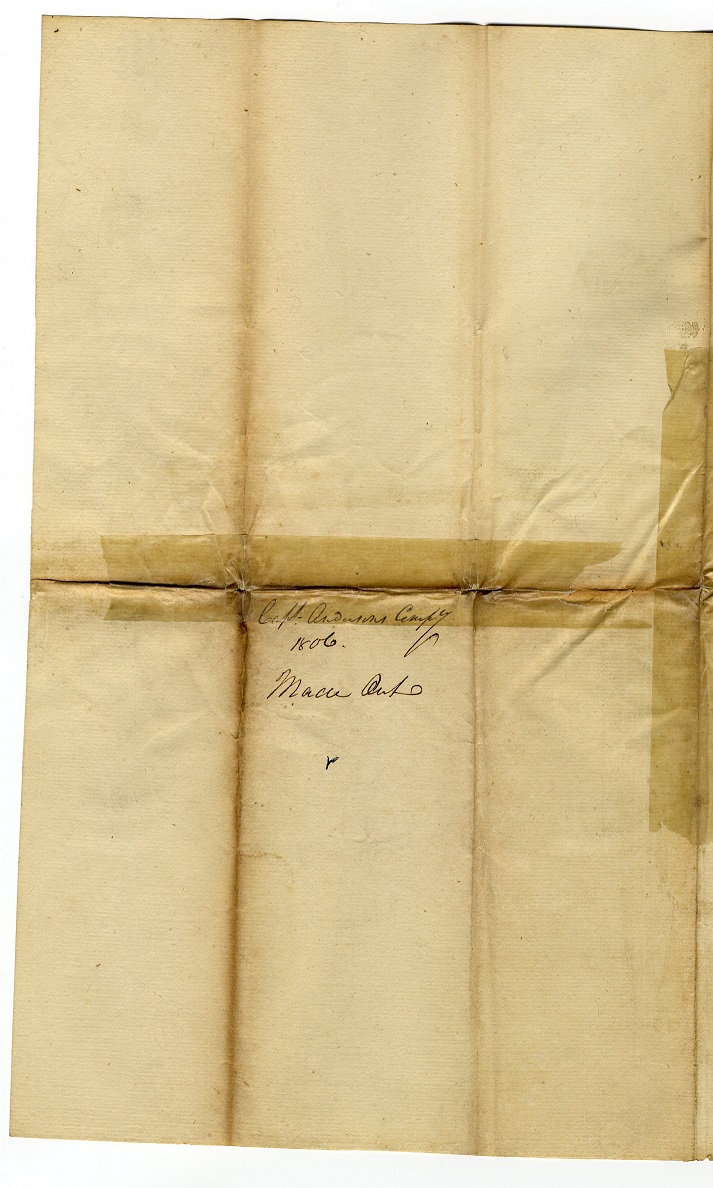 Capt. Andersons Compy
1806.
Made Out